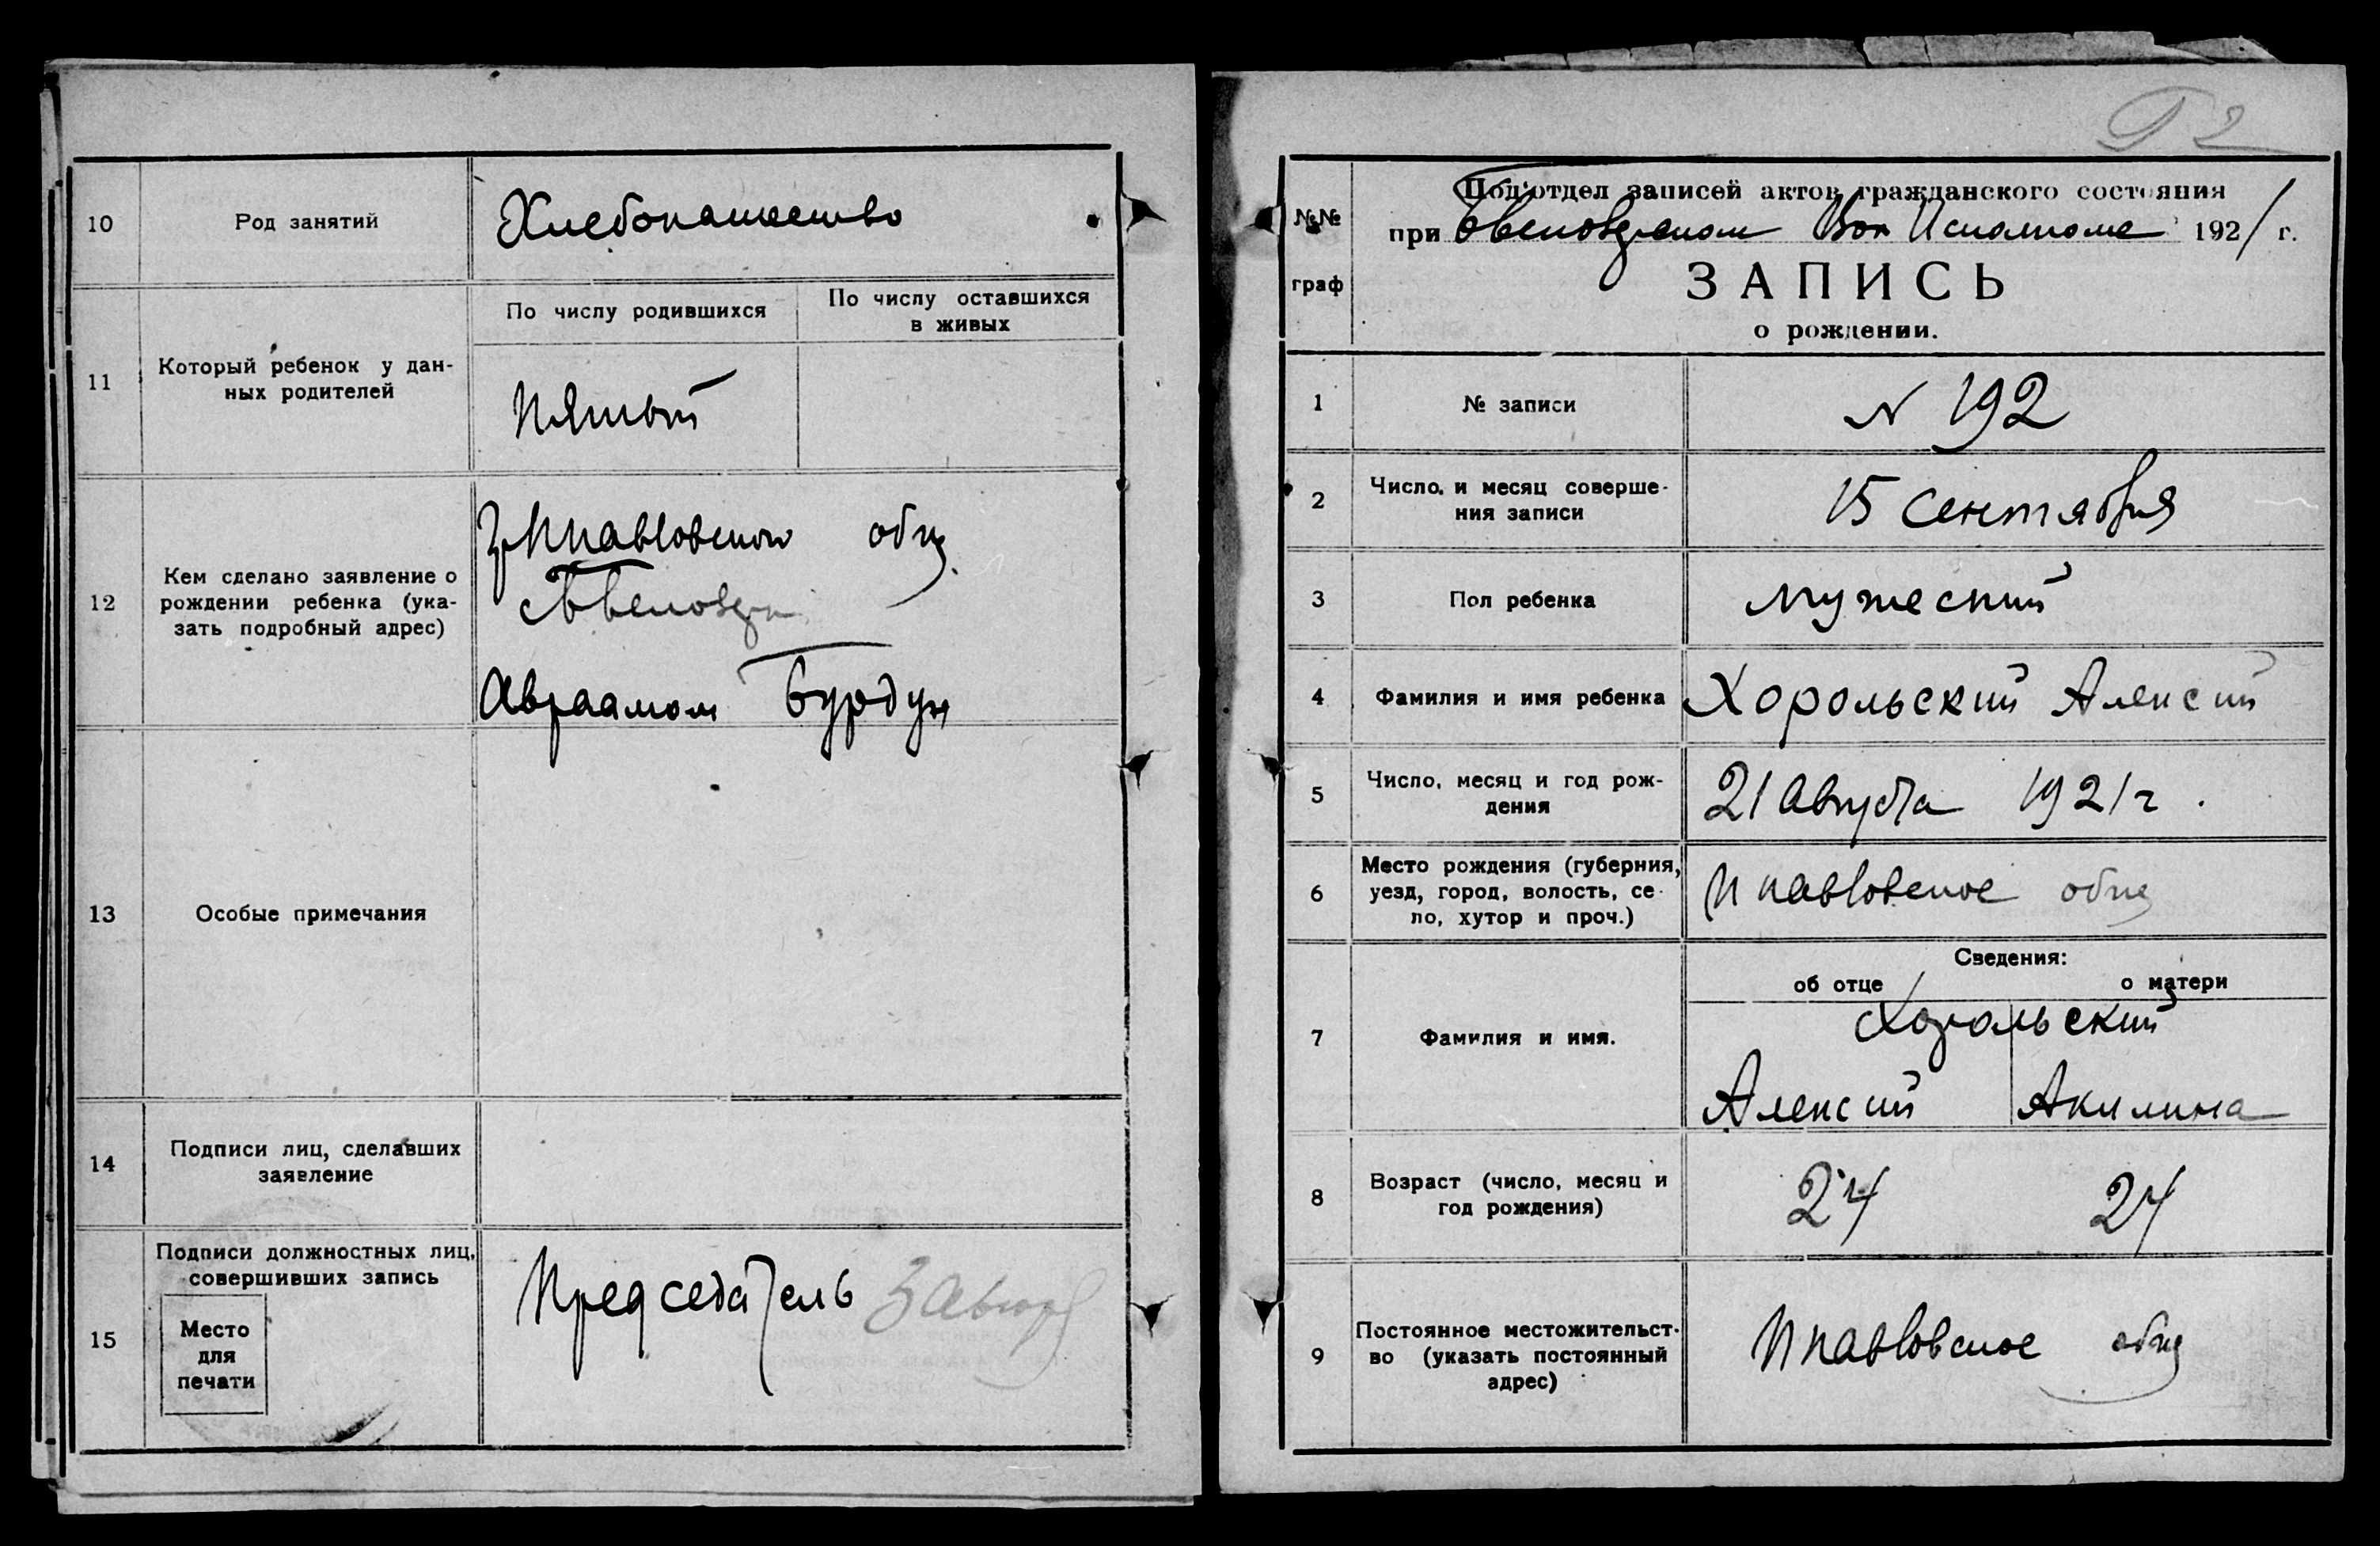 10
Род занятий
Хлебопашество
11
Который ребенок у дан-
ных родителей
По числу родившихся
По числу оставшихся
в живых
Пятый
12
Кем сделано заявление о
рождении ребенка (ука-
зать подробный адрес)
общ.
Авраамом Бурдун
13
Особые примечания
14
Подписи лиц, сделавших
заявление
15
Подписи должностных лиц,
совершивших запись
Место
для
печати
Председатель
№№
граф
Под'отдел записей актов гражданского состояния
при Вол Исполкоме 1921 г.
ЗАПИСЬ
о рождении.
1
№ записи
N 192
2
Число и месяц соверше-
ния записи
15 сентября
3
Пол ребенка
мужеский
4
Фамилия и имя ребенка
Хорольский Алексий
5
Число, месяц и год рож-
дения
21 Августа 1921 г.
6
Место рождения (губерния,
уезд, город, волость, се-
ло, хутор и проч.)
Ипавловское общ
7
Фамилия и имя.
Сведения:
об отце
о матери
Хорольский
Алексий
Акилина
8
Возраст (число, месяц и
год рождения)
24
24
9
Постоянное местожительст-
во (указать постоянный
адрес)
Ипавловское общ